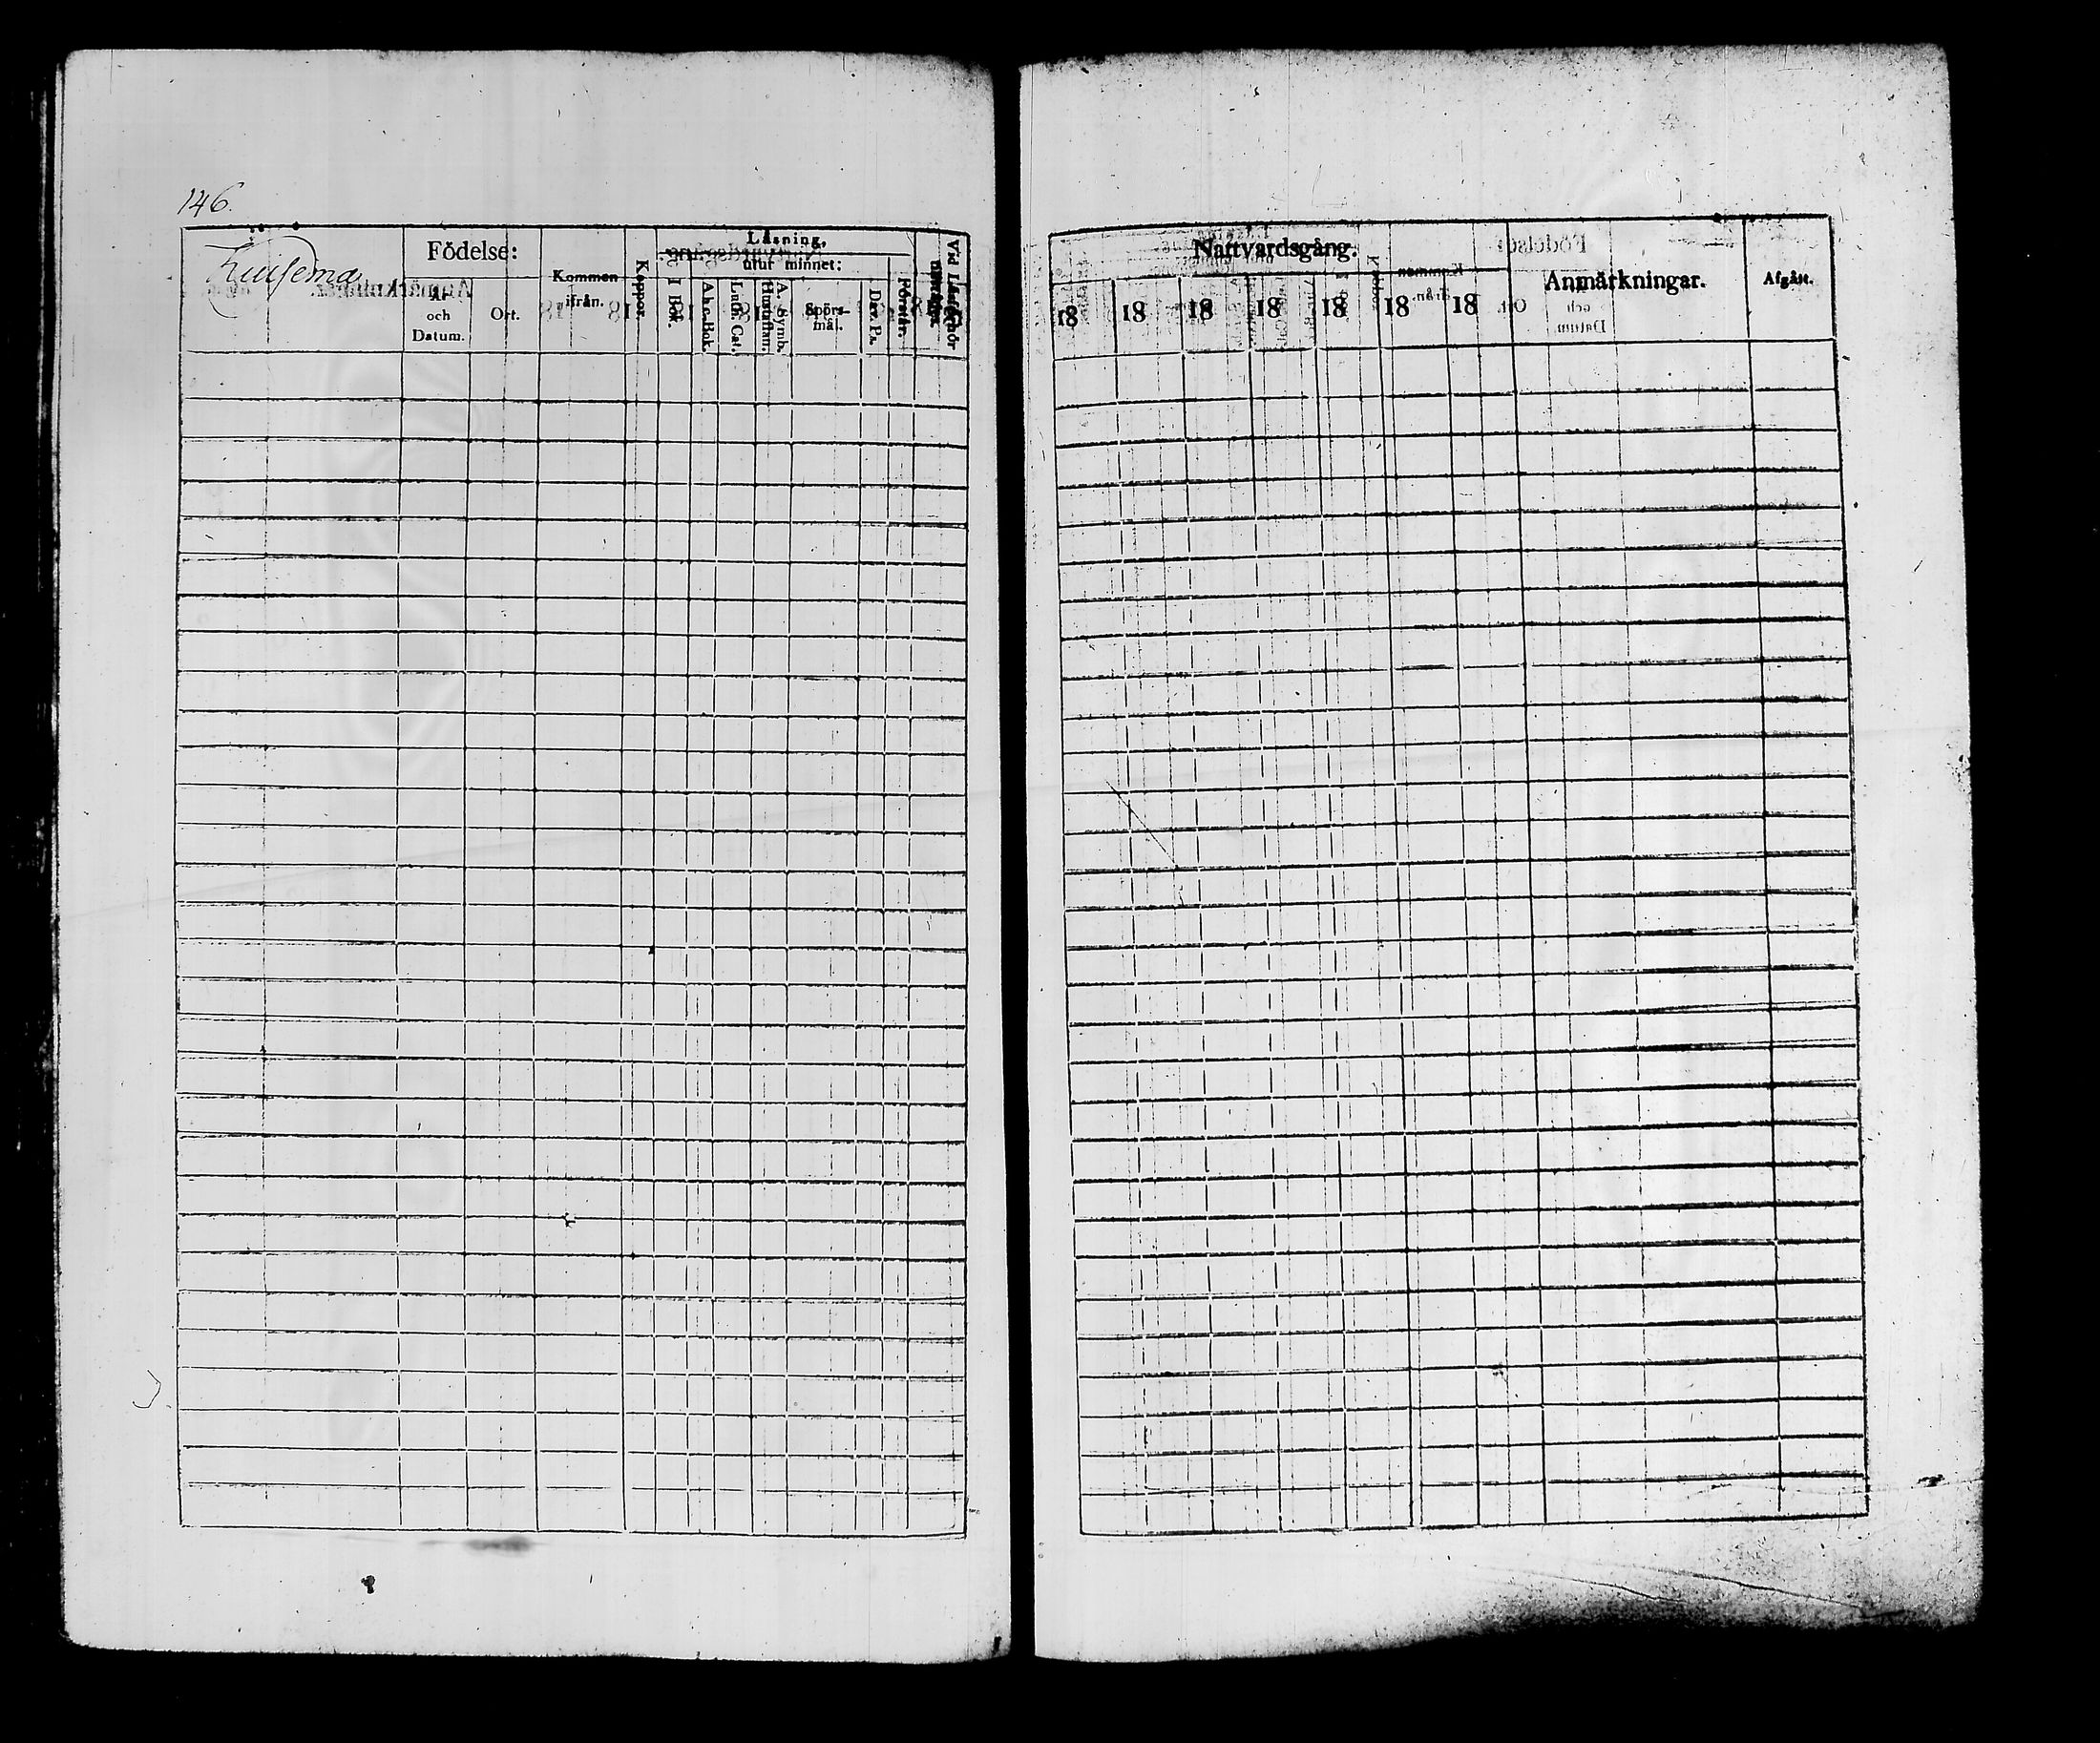 146.
Födelse:
År och Datum.
Ort.
Kommen ifrån.
Koppor.
Läsning,
I Bok.
utur minnet:
A.b.c.Bok.
Luth. Cat.
Hustaflan.
A. Symb.
Spörs-
mål.
Dav. Ps.
Förstår.
Vid Läsförhör
Nattvardsgång.
18 18 18 18 18 18 18
Anmärkningar.
Afgått.